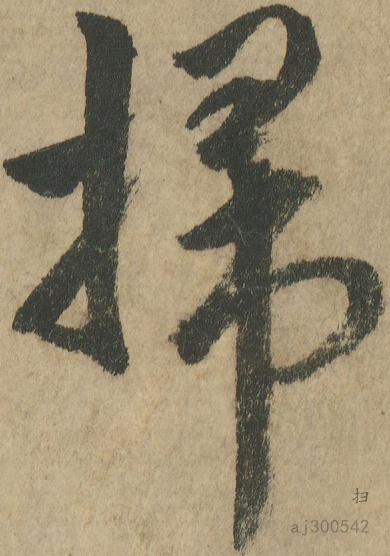 掃
扫
aj300542